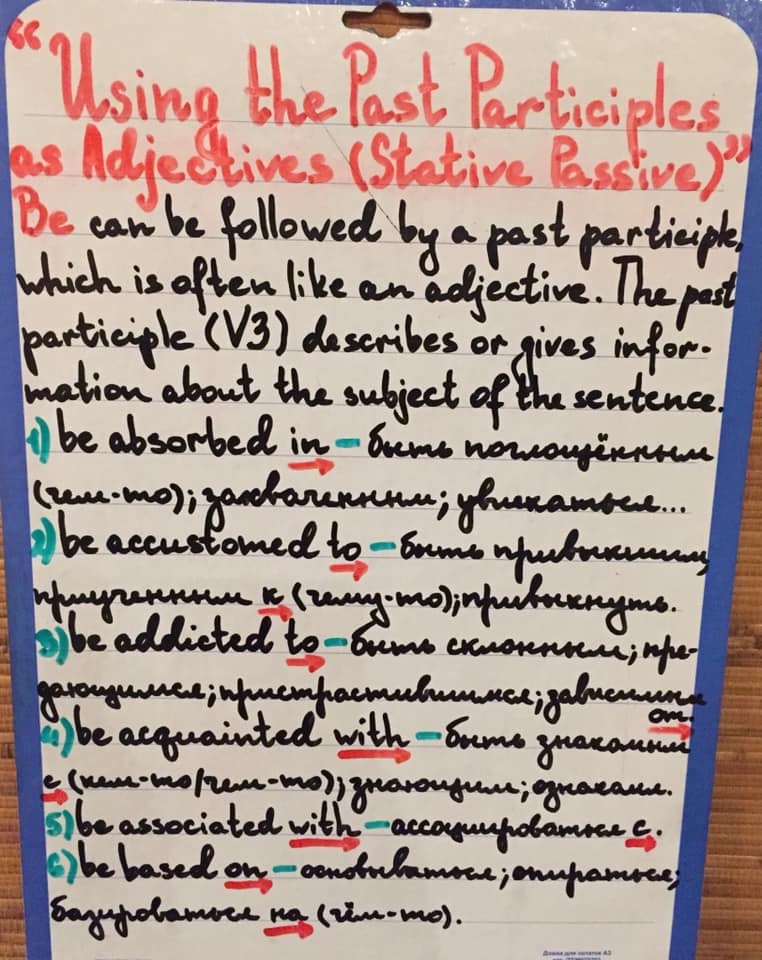 “Using the Past Participles
as Adjectives (Stative Passive)”
Be can be followed by a past participle,
which is often like an adjective. The past
participle (V3) describes or gives infor-
mation about the subject of the sentence.
1) be absorbed in - быть поглощённым
(чем-то); захваченным; увлекаться...
2) be accustomed to - быть привыкшим,
приученным к (чему-то); привыкнуть.
3) be addicted to - быть склонным; пре-
дающимся; пристрастившимся; зависимым
от.
4) be acquainted with - быть знакомым
с (кем-то/чем-то); знающим; ознакомл.
5) be associated with - ассоциироваться с.
6) be based on - основываться; опираться;
базироваться на (чём-то).
Доска для заметок А3